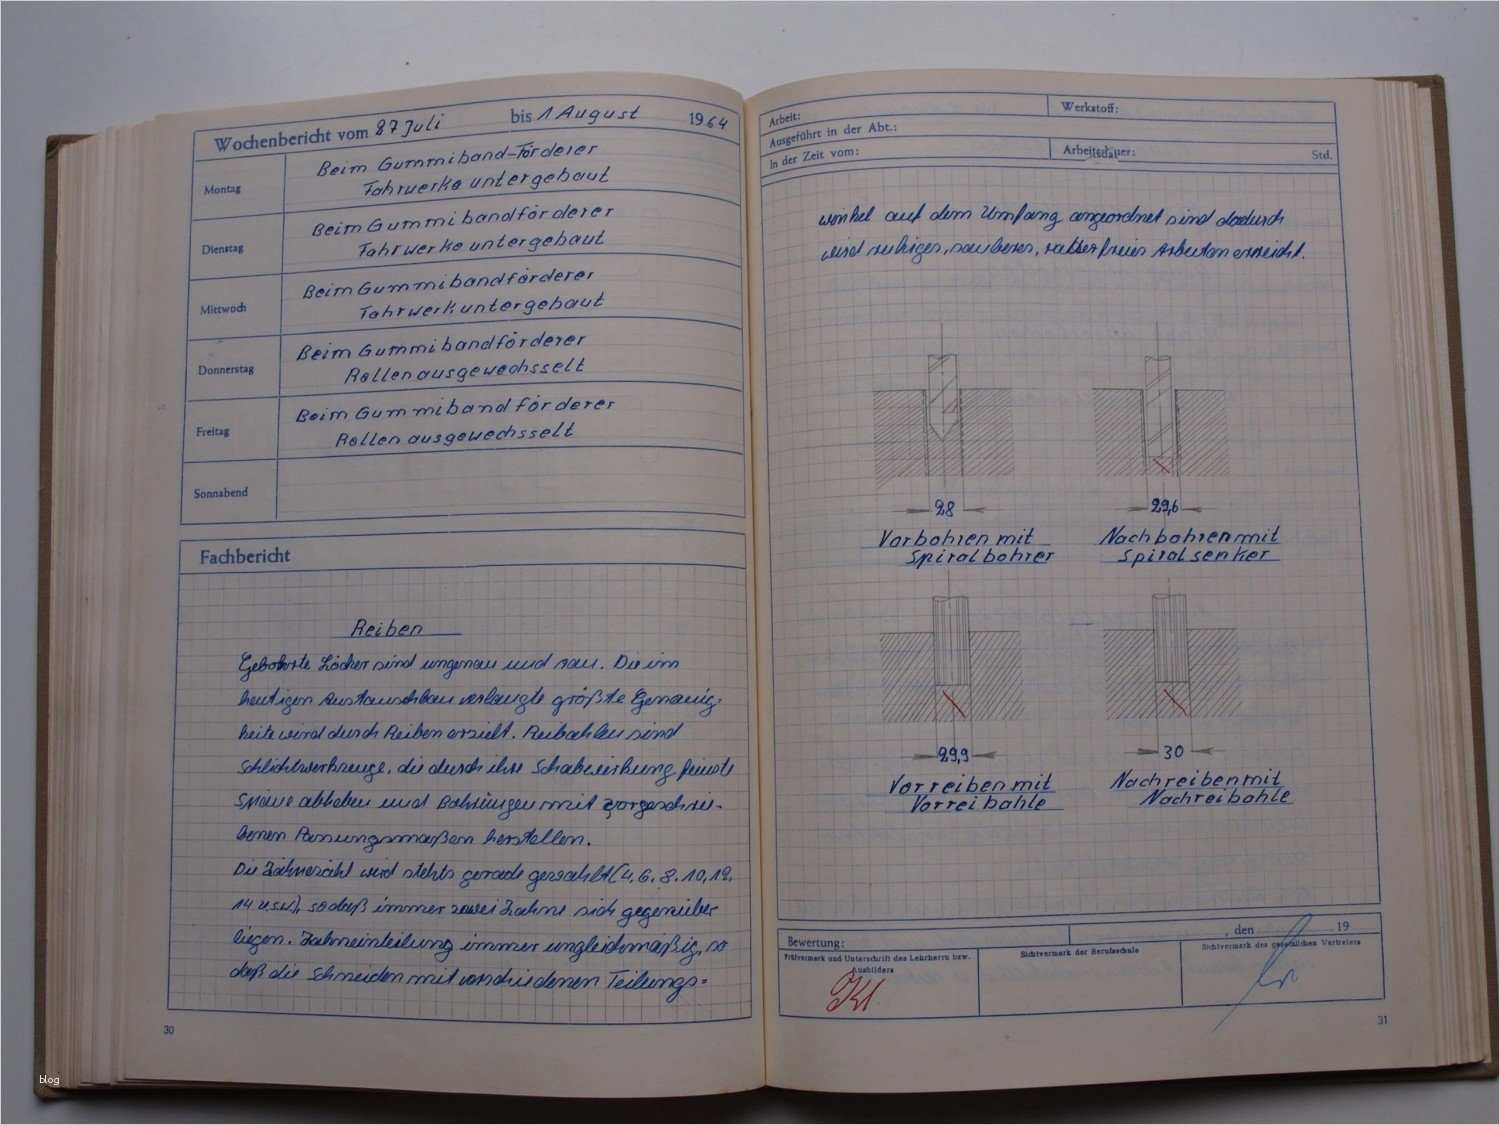 Wochenbericht vom 27 Juli bis 1 August 1964
Montag
Beim Gummiband-Förderer
Fahrwerke untergebaut
Dienstag
Beim Gummibandförderer
Fahrwerke untergebaut
Mittwoch
Beim Gummibandförderer
Fahrwerk untergebaut
Donnerstag
Beim Gummibandförderer
Rollen ausgewechsselt
Freitag
Beim Gummibandförderer
Rollen ausgewechsselt
Sonnabend
Fachbericht
Reiben
Gebohrte Löcher sind ungenau und rau. Die im
heutigen Austauschbau verlangte größte Genauig-
keite wird durch Reiben erzielt. Reibahlen sind
Schlichtwerkzeuge, die durch ihre Schabewirkung feinste
Späne abheben und Bohrungen mit vorgeschrie-
benen Passungsmaßen herstellen.
Die Zähnezahl wird stehts gerade gewählt (4, 6, 8, 10, 12,
14 usw), sodaß immer zwei Zähne sich gegenüber
liegen. Zahneinteilung immer ungleichmäßig, so
daß die Schneiden mit verschiedenen Teilungs=
30
blog
Arbeit:
Werkstoff:
Ausgeführt in der Abt.:
In der Zeit vom:
Arbeitsdauer:
Std.
winkel auf dem Umfang angeordnet sind dadurch
wird ruhiges, sauberes, ratterfreies Arbeiten erreicht.
28
29,6
Vorbohren mit
Spiralbohrer
Nachbohren mit
Spiralsenker
29,9
30
Vorreiben mit
Vorreibahle
Nachreiben mit
Nachreibahle
Bewertung:
, den 19
Prüfvermerk und Unterschrift des Lehrherrn bzw.
Ausbilders
Sichtvermerk der Berufsschule
Sichtvermerk des gesetzlichen Vertreters
31